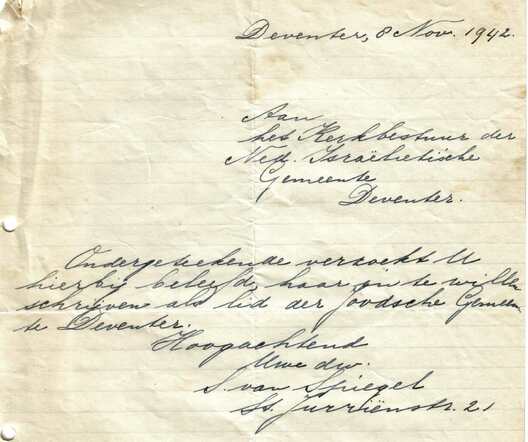 Deventer, 8 Nov. 1942.
Aan
het Kerkbestuur der
Ned. Israëlietische
Gemeente
Deventer.
Ondergeteekende verzoekt U
hierbij beleefd, haar in te willen
schrijven als lid der Joodsche Gemeen
te Deventer.
Hoogachtend
Uwe dw.
S. van Spiegel
St. Jurriënstr. 21